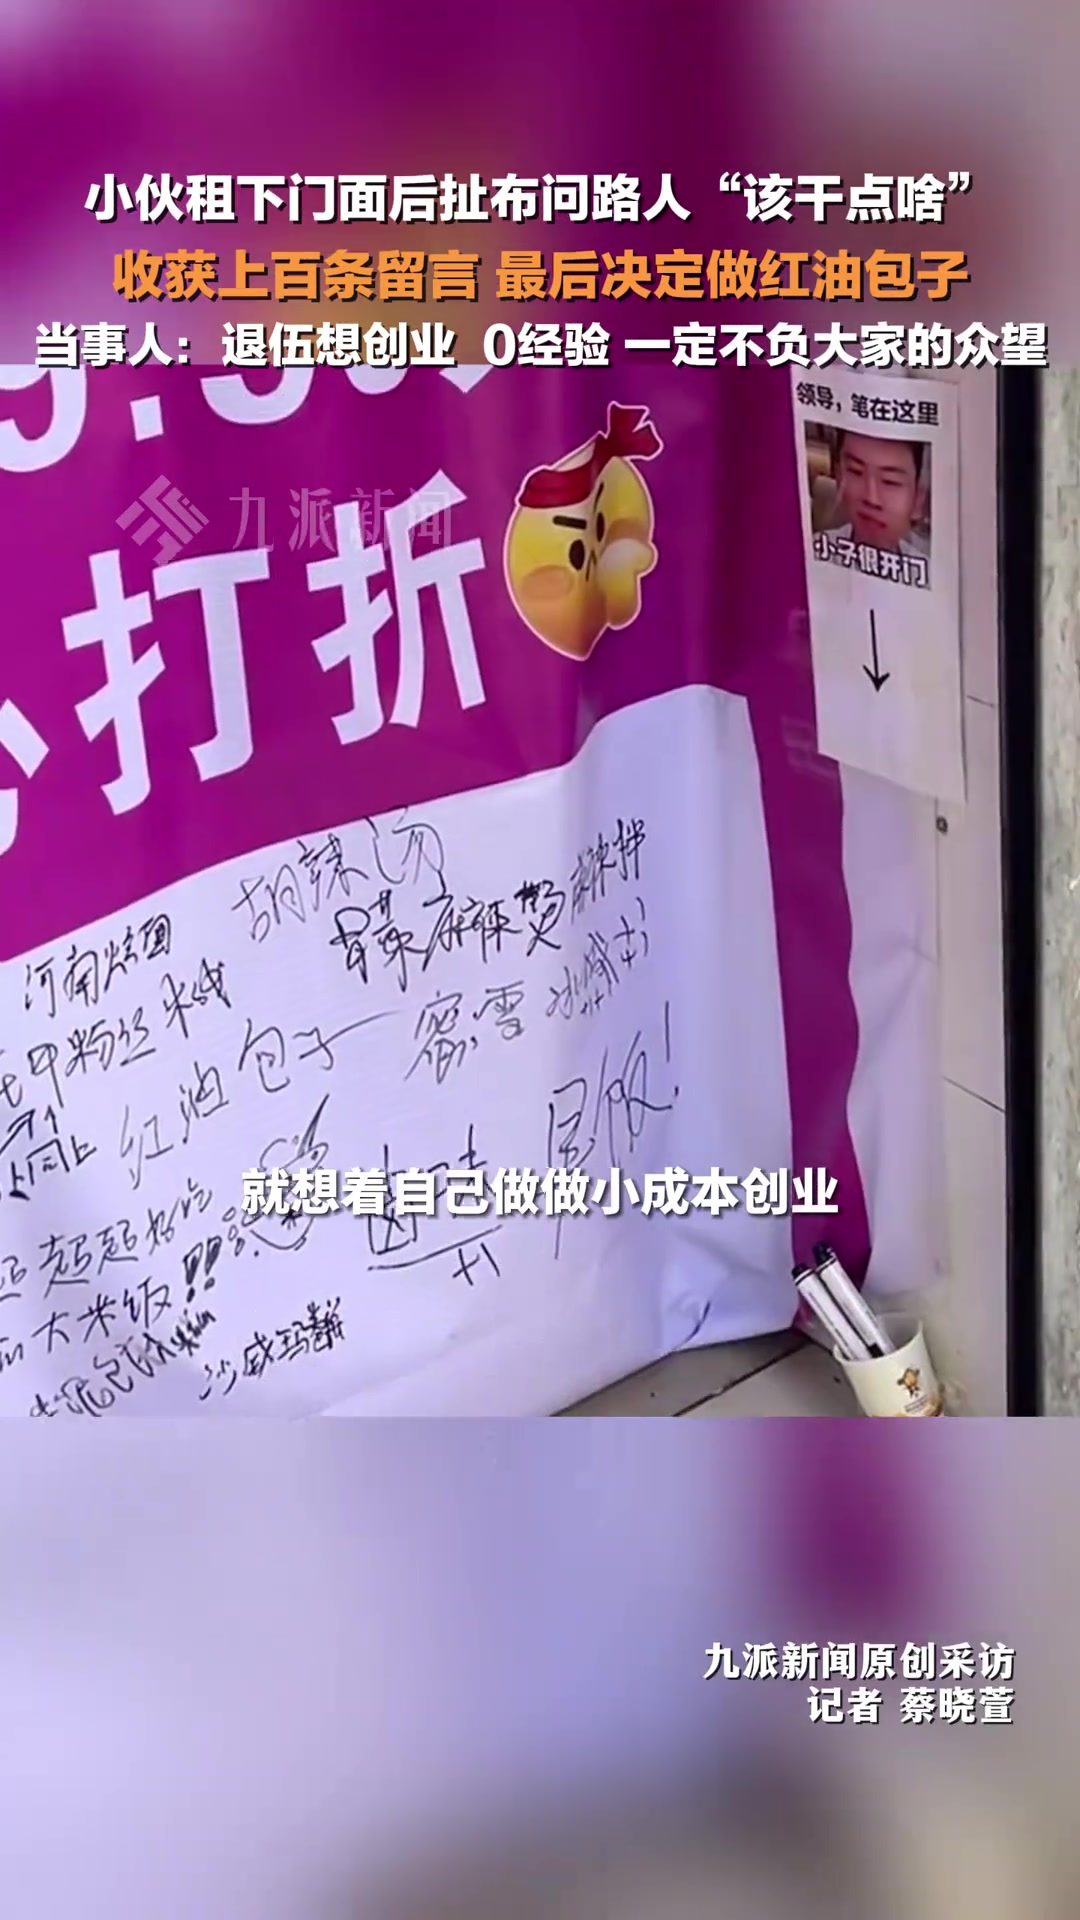 小伙租下门面后扯布问路人“该干点啥”
收获上百条留言 最后决定做红油包子
当事人：退伍想创业 0经验 一定不负大家的众望
领导，笔在这里
小子很开门
九派新闻
打折
胡辣汤
冒菜麻辣烫麻辣拌
河南烩面
粉丝米线
红油包子
蜜雪冰城
同上
早饭！
超超好吃
大米饭!!
+1
沙威玛
就想着自己做做小成本创业
九派新闻原创采访
记者 蔡晓萱